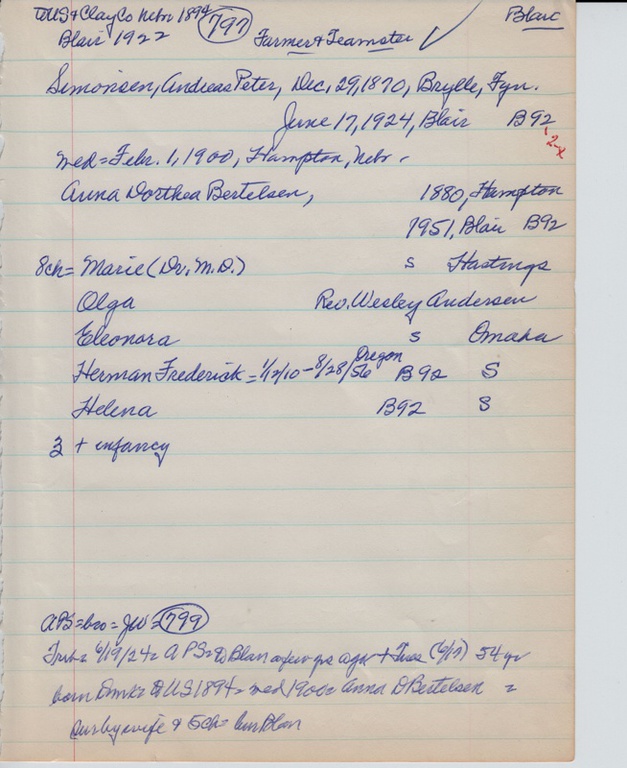 to US & Clay Co Nebr 1894 797 Blair
Blair 1922 Farmer & Teamster ✓
Simonsen, Andreas Peter, Dec, 29, 1870, Brylle, Fyn.
June 17, 1924, Blair B92
2-x
wed = Febr. 1, 1900, Hampton, Nebr -
Anna Dorthea Bertelsen, 1880, Hampton
1951, Blair B92
8ch = Marie (Dr, M.D.) S Hastings
Olga Rev. Wesley Andersen
Eleonora S Omaha
Herman Frederick = 1/2/10 - 8/28/56 Oregon B92 S
Helena B92 S
3 + infancy
APS = bro = JW = 799
Trib = 6/19/24 = APS = to Blair a few yrs ago + Tues (6/17) 54 yr
born Dmk = to US 1894 = wed 1900 = Anna D Bertelsen =
surbywife & 5ch = bur Blair